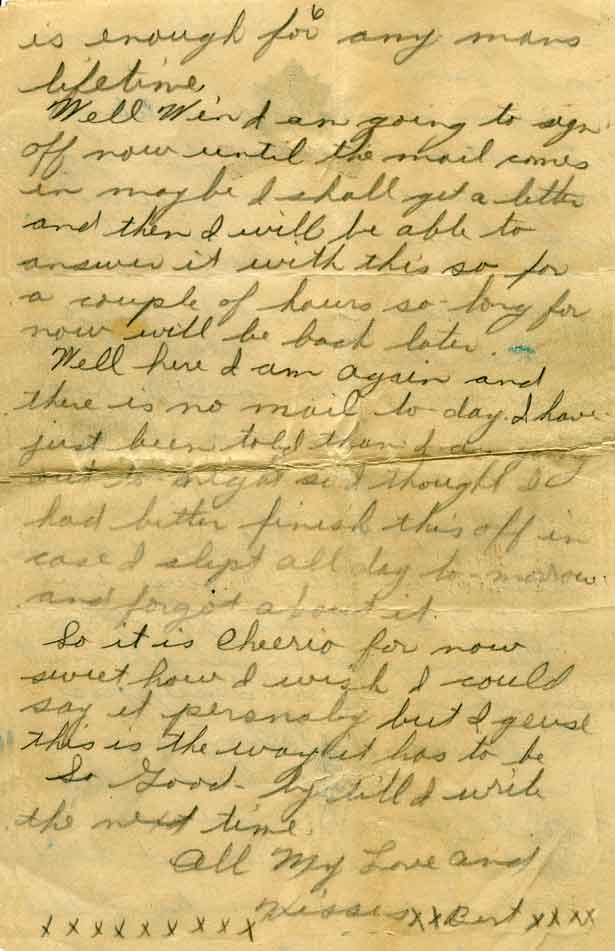 6
is enough for any mans
lifetime
Well Win I am going to sign
off now until the mail comes
in maybe I shall get a letter
and then I will be able to
answer it with this so for
a couple of hours so-long for
now will be back later.
Well here I am again and
there is no mail to-day. I have
just been told than I
out to-night so I thought I
had better finish this off in
case I slept all day to-morrow
and forgot about it.
So it is Cheerio for now
sweet how I wish I could
say it personaly but I geuse
this is the way it has to be
So Good-by till I write
the next time
All My Love and
Kisses xx Bert xxxx
xxxxxxxxx